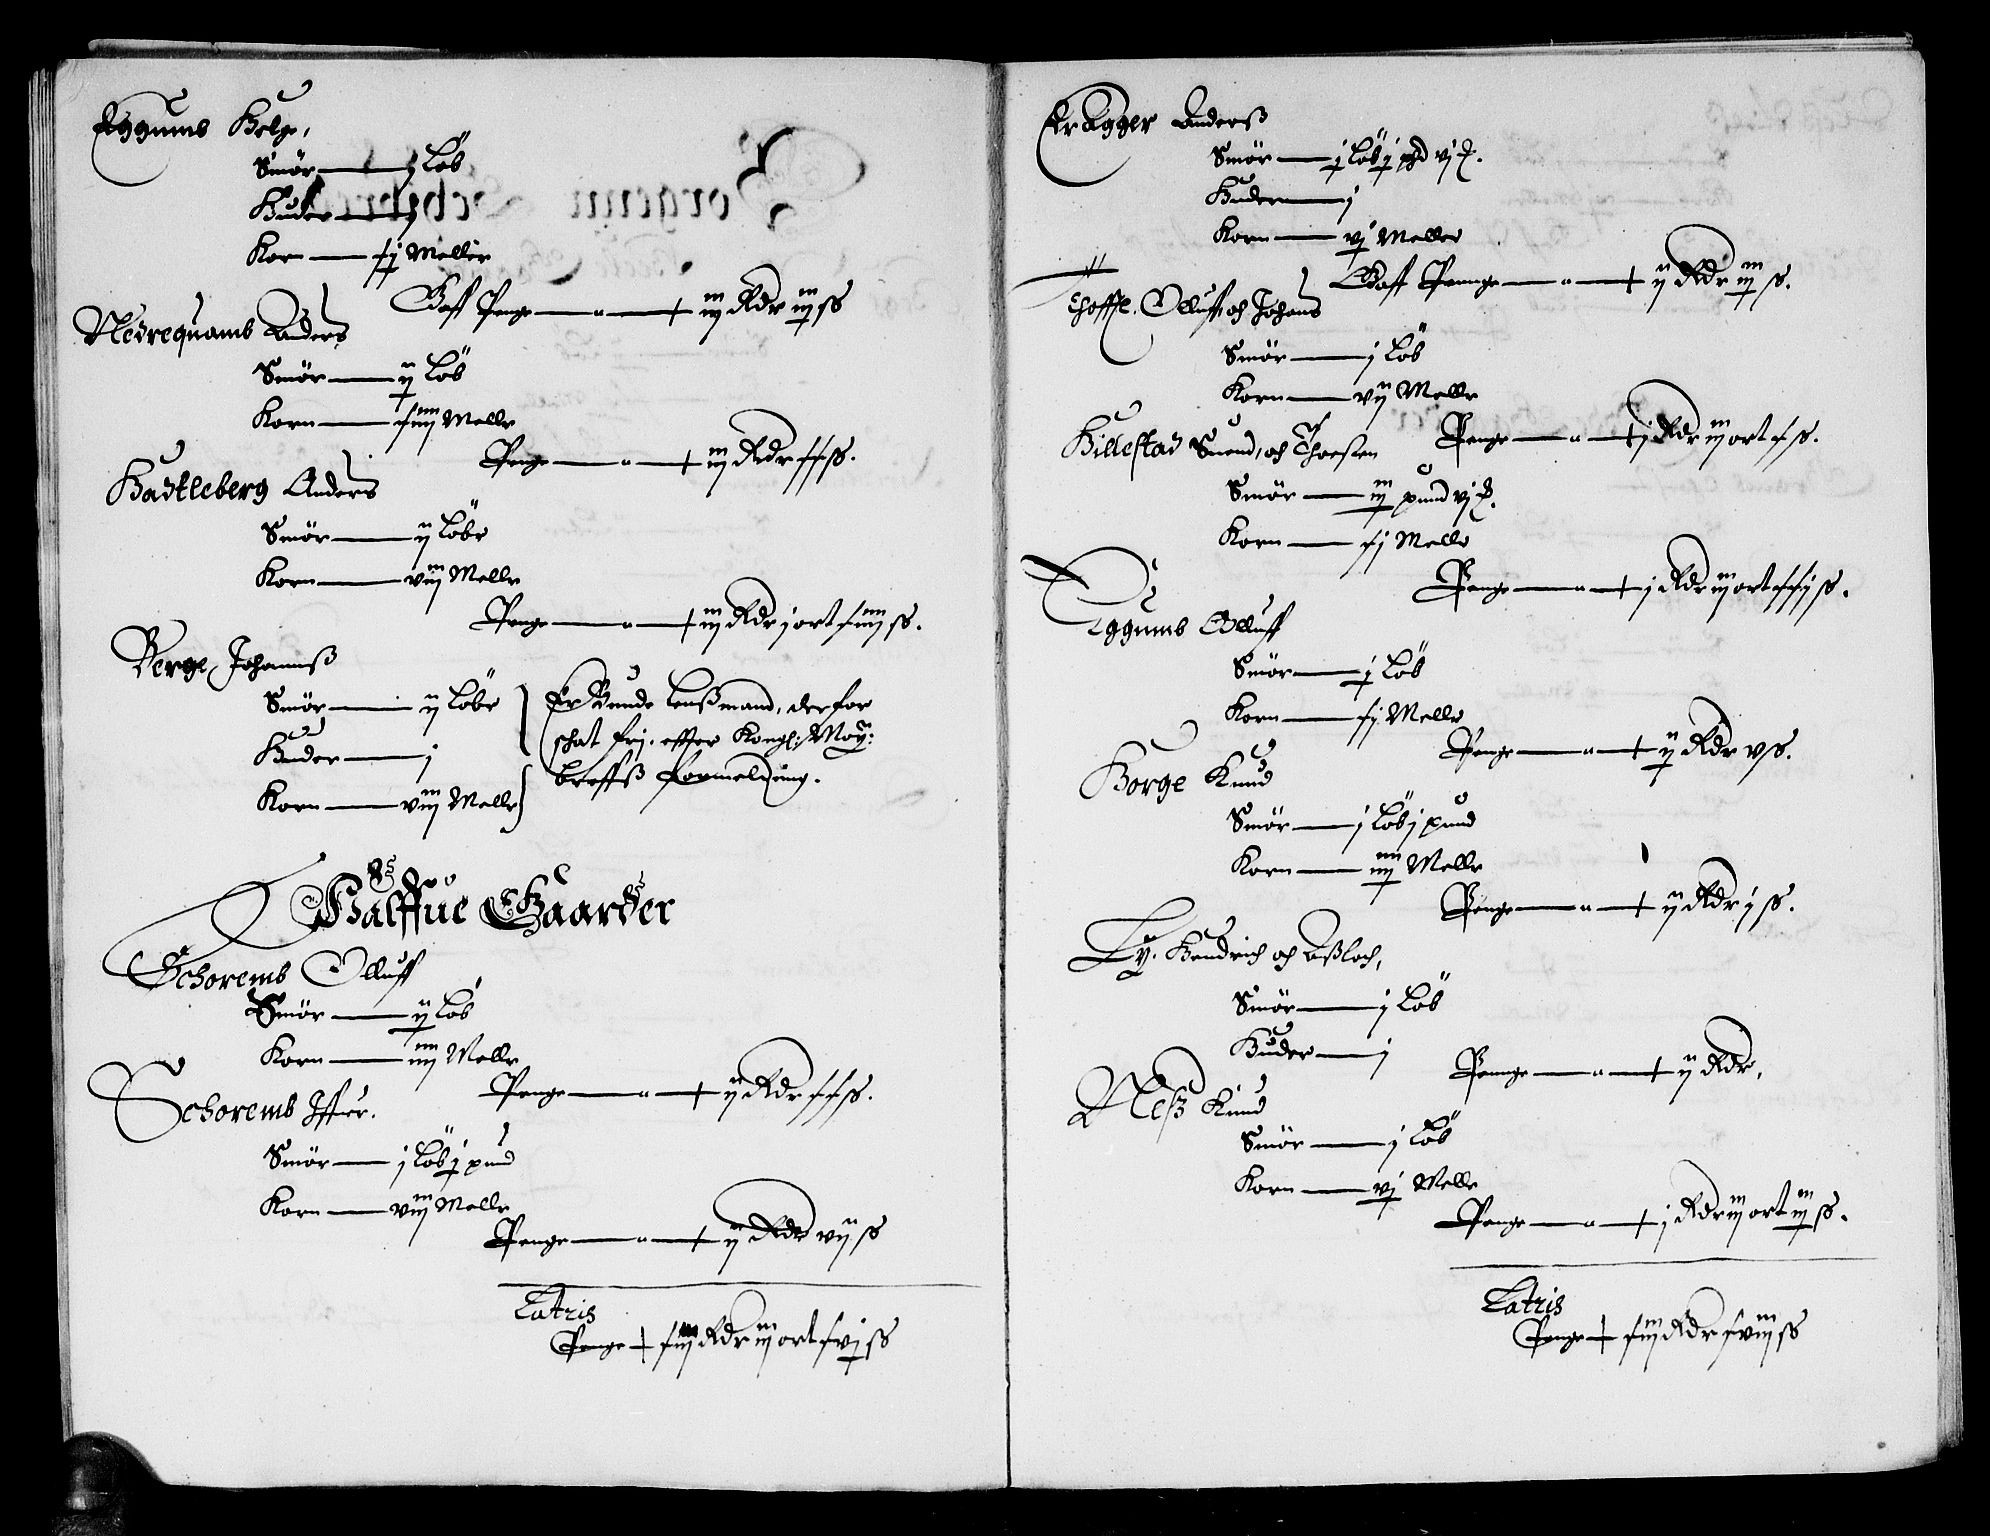 Eggumb Helge,
Smör — j Löb
Huder — j
Korn — xj Meller
Gaff Penge — iij Rdr iij ss
Nedrequamb Anders
Smör — ij Löb
Korn — xiiij Meller
Penge — iij Rdr xx ss.
Hadtleberg Anders
Smör — ij Löbe
Korn — viij Meller
Penge — iij Rdr j ort xiiij ss.
Berge, Johanns
Smör — ij Löbe
Huder — j
Korn — viij Meller
Er Bunde Lenßmand, der for
schat fri, effter Kongl: May:
breffß formelding.
Halffue Gaarder
Schoremb Olluff
Smör — ij Löb
Korn — iiij Meller
Penge — ij Rdr xx ss.
Schoremb Iffuer.
Smör — j Löb j pund
Korn — viij Meller
Penge — ij Rdr vij ss
Latris
Penge xiij Rdr iij ort xvj ss
Kragger Anderß
Smör — j Löb j pd vj
Huder — j
Korn — vj Meller
Gaff Penge — ij Rdr iij ss.
Olluff och Johans
Smör — j Löb
Korn — vij Meller
Penge — j Rdr iij ort x ss.
Hillestad Suend, och Thorsten
Smör — iij pund vj
Korn — xj Meller
Penge — j Rdr iij ort xxj ss.
Eggumb Olluff
Smör — j Löb
Korn — xj Meller
Penge — ij Rdr v ss.
Borge Knud
Smör — j Löb j pund
Korn — iiij Meller
Penge — ij Rdr j ss.
Ly. Hendrich och Aßlach,
Smör — j Löb
Huder — j
Penge — ij Rdr,
Neß Knud
Smör — j Löb
Korn — vj Meller
Penge — j Rdr iij ort iij ss.
Latris
Penge xiij Rdr xviij ss